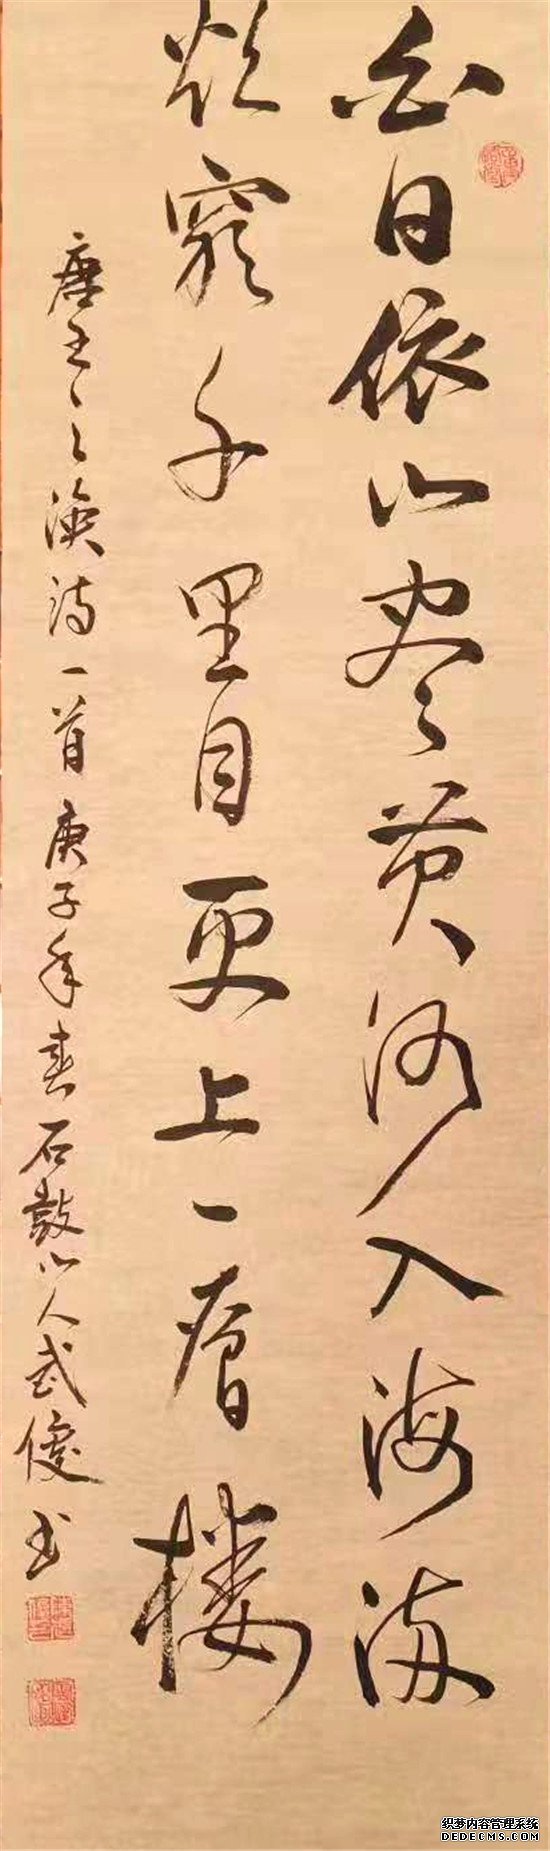 白日依山尽黄河入海流
欲穷千里目更上一层楼
唐王之涣诗一首庚子年春石鼓山人武俊书
织梦内容管理系统
DEDECMS.COM